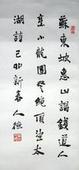 蘇東坡惠山謁錢道人
烹小龍團登絕頂望太
湖詩己卯新春人